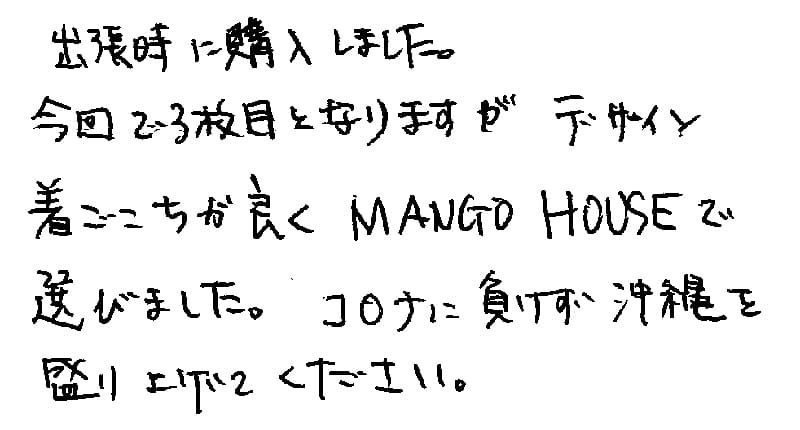 出張時に購入しました。
今回で3枚目となりますが デザイン
着ごこちが良く MANGO HOUSEで
選びました。 コロナに負けず 沖縄を
盛り上げてください。